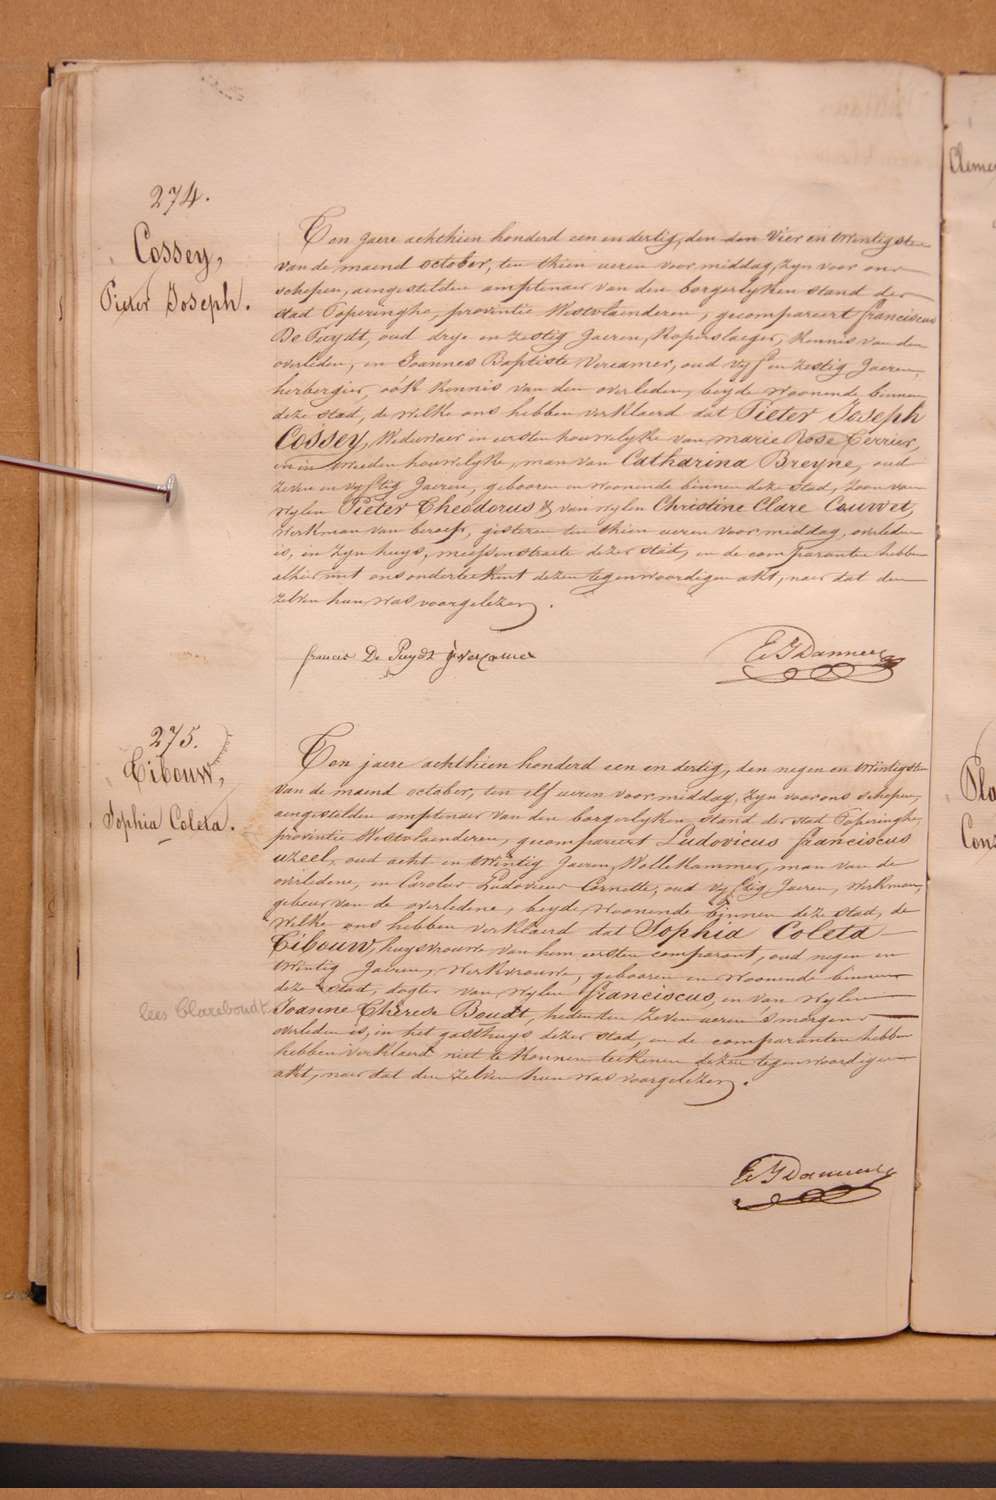 274.
Cossey,
Pieter Joseph.
Ten jaere achthien honderd een en dertig, den den vier en twintigsten
van de maend october, ten thien ueren voor middag, zyn voor ons
schepen, aengestelden amptenaer van den borgerlyken stand der
stad Poperinghe, provintie Westvlaenderen, gecompareert franciscus
De Puydt, oud drye en zestig Jaeren, Koperslaeger, Kennis van den
overleden, en Joannes Baptiste Vercamer, oud vyf en zestig Jaeren,
herbergier, oók Kennis van den overleden, beyde woonende binnen
deze stad, de welke ons hebben verklaerd dat Pieter Joseph
Cossey, Weduwaer in eersten houwelyke van marie Rose Terrier,
en in tweeden houwelyke, man van Catharina Breyne, oud
zeven en vyftig Jaeren, gebooren en woonende binnen deze stad, zoon van
wylen Pieter Theodorus & van wylen Christine Clare Couwet,
werkman van beroep, gisteren ten thien ueren voor middag, overleden
is, in zyn huys, meessenstraete dezer stad, en de comparanten hebben
alhier met ons onderteekent dezen tegenwoordigen akt, naer dat den
zelven hun was voorgelezen.
francis De Puydt j vercamer
275.
Tibouw,
Sophia Coleta.
Ten jaere achthien honderd een en dertig, den negen en twintigsten
van de maend october, ten elf ueren voor middag, zyn voor ons schepen,
aengestelden amptenaer van den borgerlyken stand der stad Poperinghe,
provintie Westvlaenderen, gecompareert Ludovicus franciscus
uzeel, oud acht en twintig Jaeren, Wollekammer, man van de
overledene, en Carolus Ludovicus Cornette, oud vyftig Jaeren, werkman,
gebeur van de overledene, beyde woonende binnen deze stad, de
welke ons hebben verklaerd dat Sophia Coleta
Tibouw, huysvrouwe van hem eersten comparant, oud negen en
twintig Jaeren, werkvrouwe, gebooren en woonende binnen
deze stad, dogter van wylen franciscus, en van wylen
lees Clareboudt
Joanne Thérese Boudt, heden ten zeven ueren 's morgens
overleden is, in het gasthuys dezer stad, en de comparanten hebben
hebben verklaerd niet te konnen teekenen dezen tegenwoordigen
akt, naer dat den zelven hun was voorgelezen.